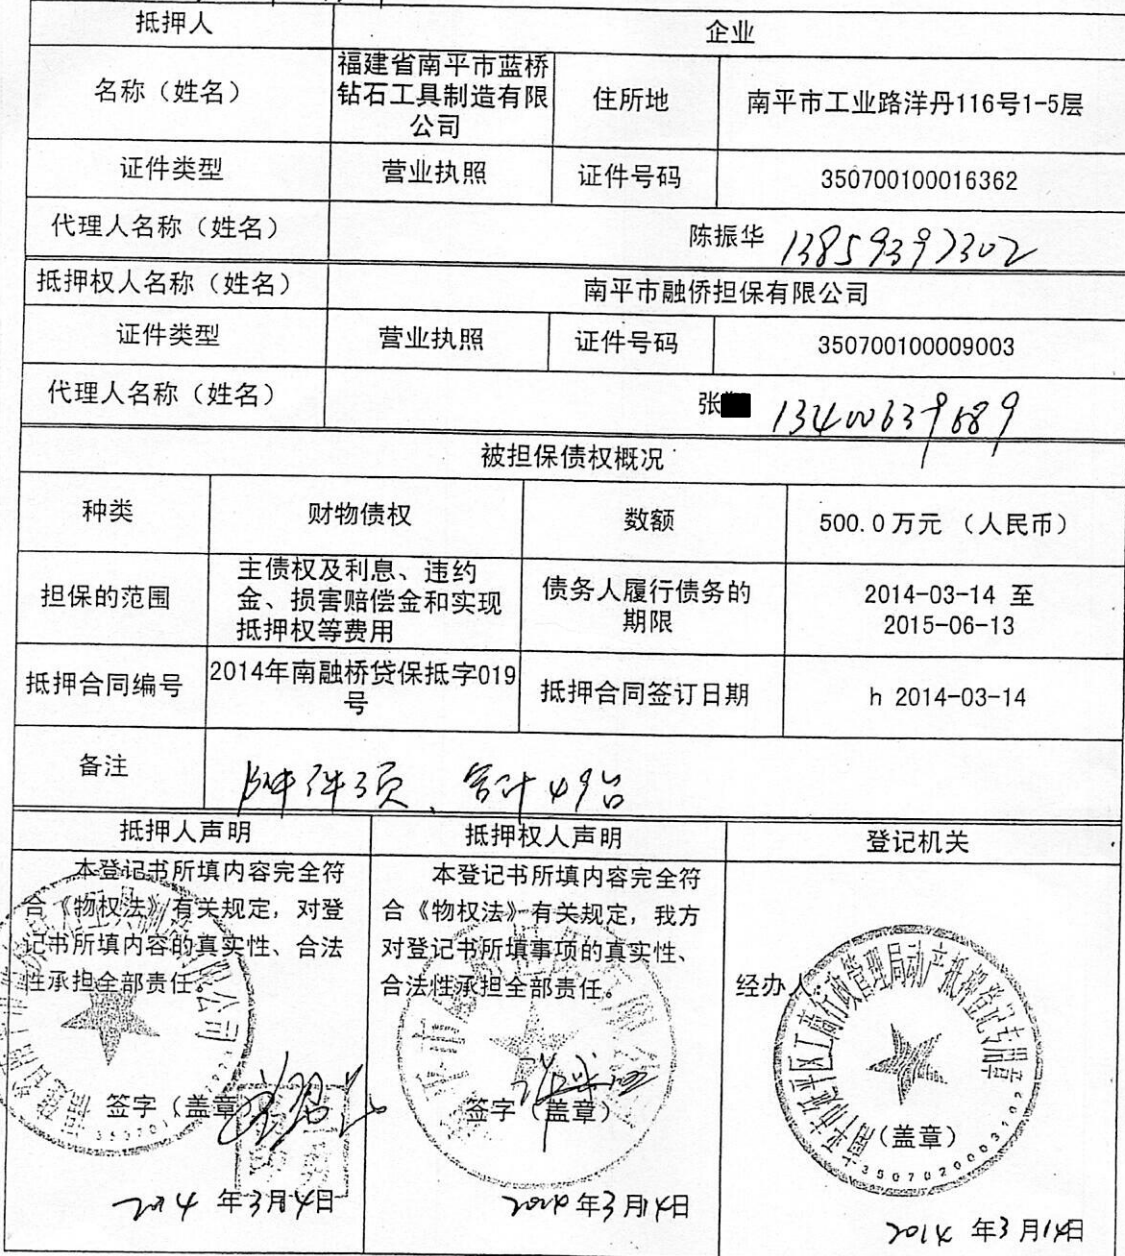 抵押人 企业
名称（姓名） 福建省南平市蓝桥钻石工具制造有限公司 住所地 南平市工业路洋丹116号1-5层
证件类型 营业执照 证件号码 350700100016362
代理人名称（姓名） 陈振华 13859397302
抵押权人名称（姓名） 南平市融侨担保有限公司
证件类型 营业执照 证件号码 350700100009003
代理人名称（姓名） 张 13400639689
被担保债权概况
种类 财物债权 数额 500.0万元 （人民币）
担保的范围 主债权及利息、违约金、损害赔偿金和实现抵押权等费用 债务人履行债务的期限 2014-03-14 至 2015-06-13
抵押合同编号 2014年南融桥贷保抵字019号 抵押合同签订日期 h 2014-03-14
备注 附件3页、合计49台
抵押人声明 抵押权人声明 登记机关
本登记书所填内容完全符
合《物权法》有关规定，对登
记书所填内容的真实性、合法
性承担全部责任。
签字（盖章）
2014 年3月14日
本登记书所填内容完全符
合《物权法》有关规定，我方
对登记书所填事项的真实性、
合法性承担全部责任。
签字（盖章）
2014年3月14日
经办人：
南平市延平区工商行政管理局动产抵押登记专用章
（盖章）
2014 年3月14日